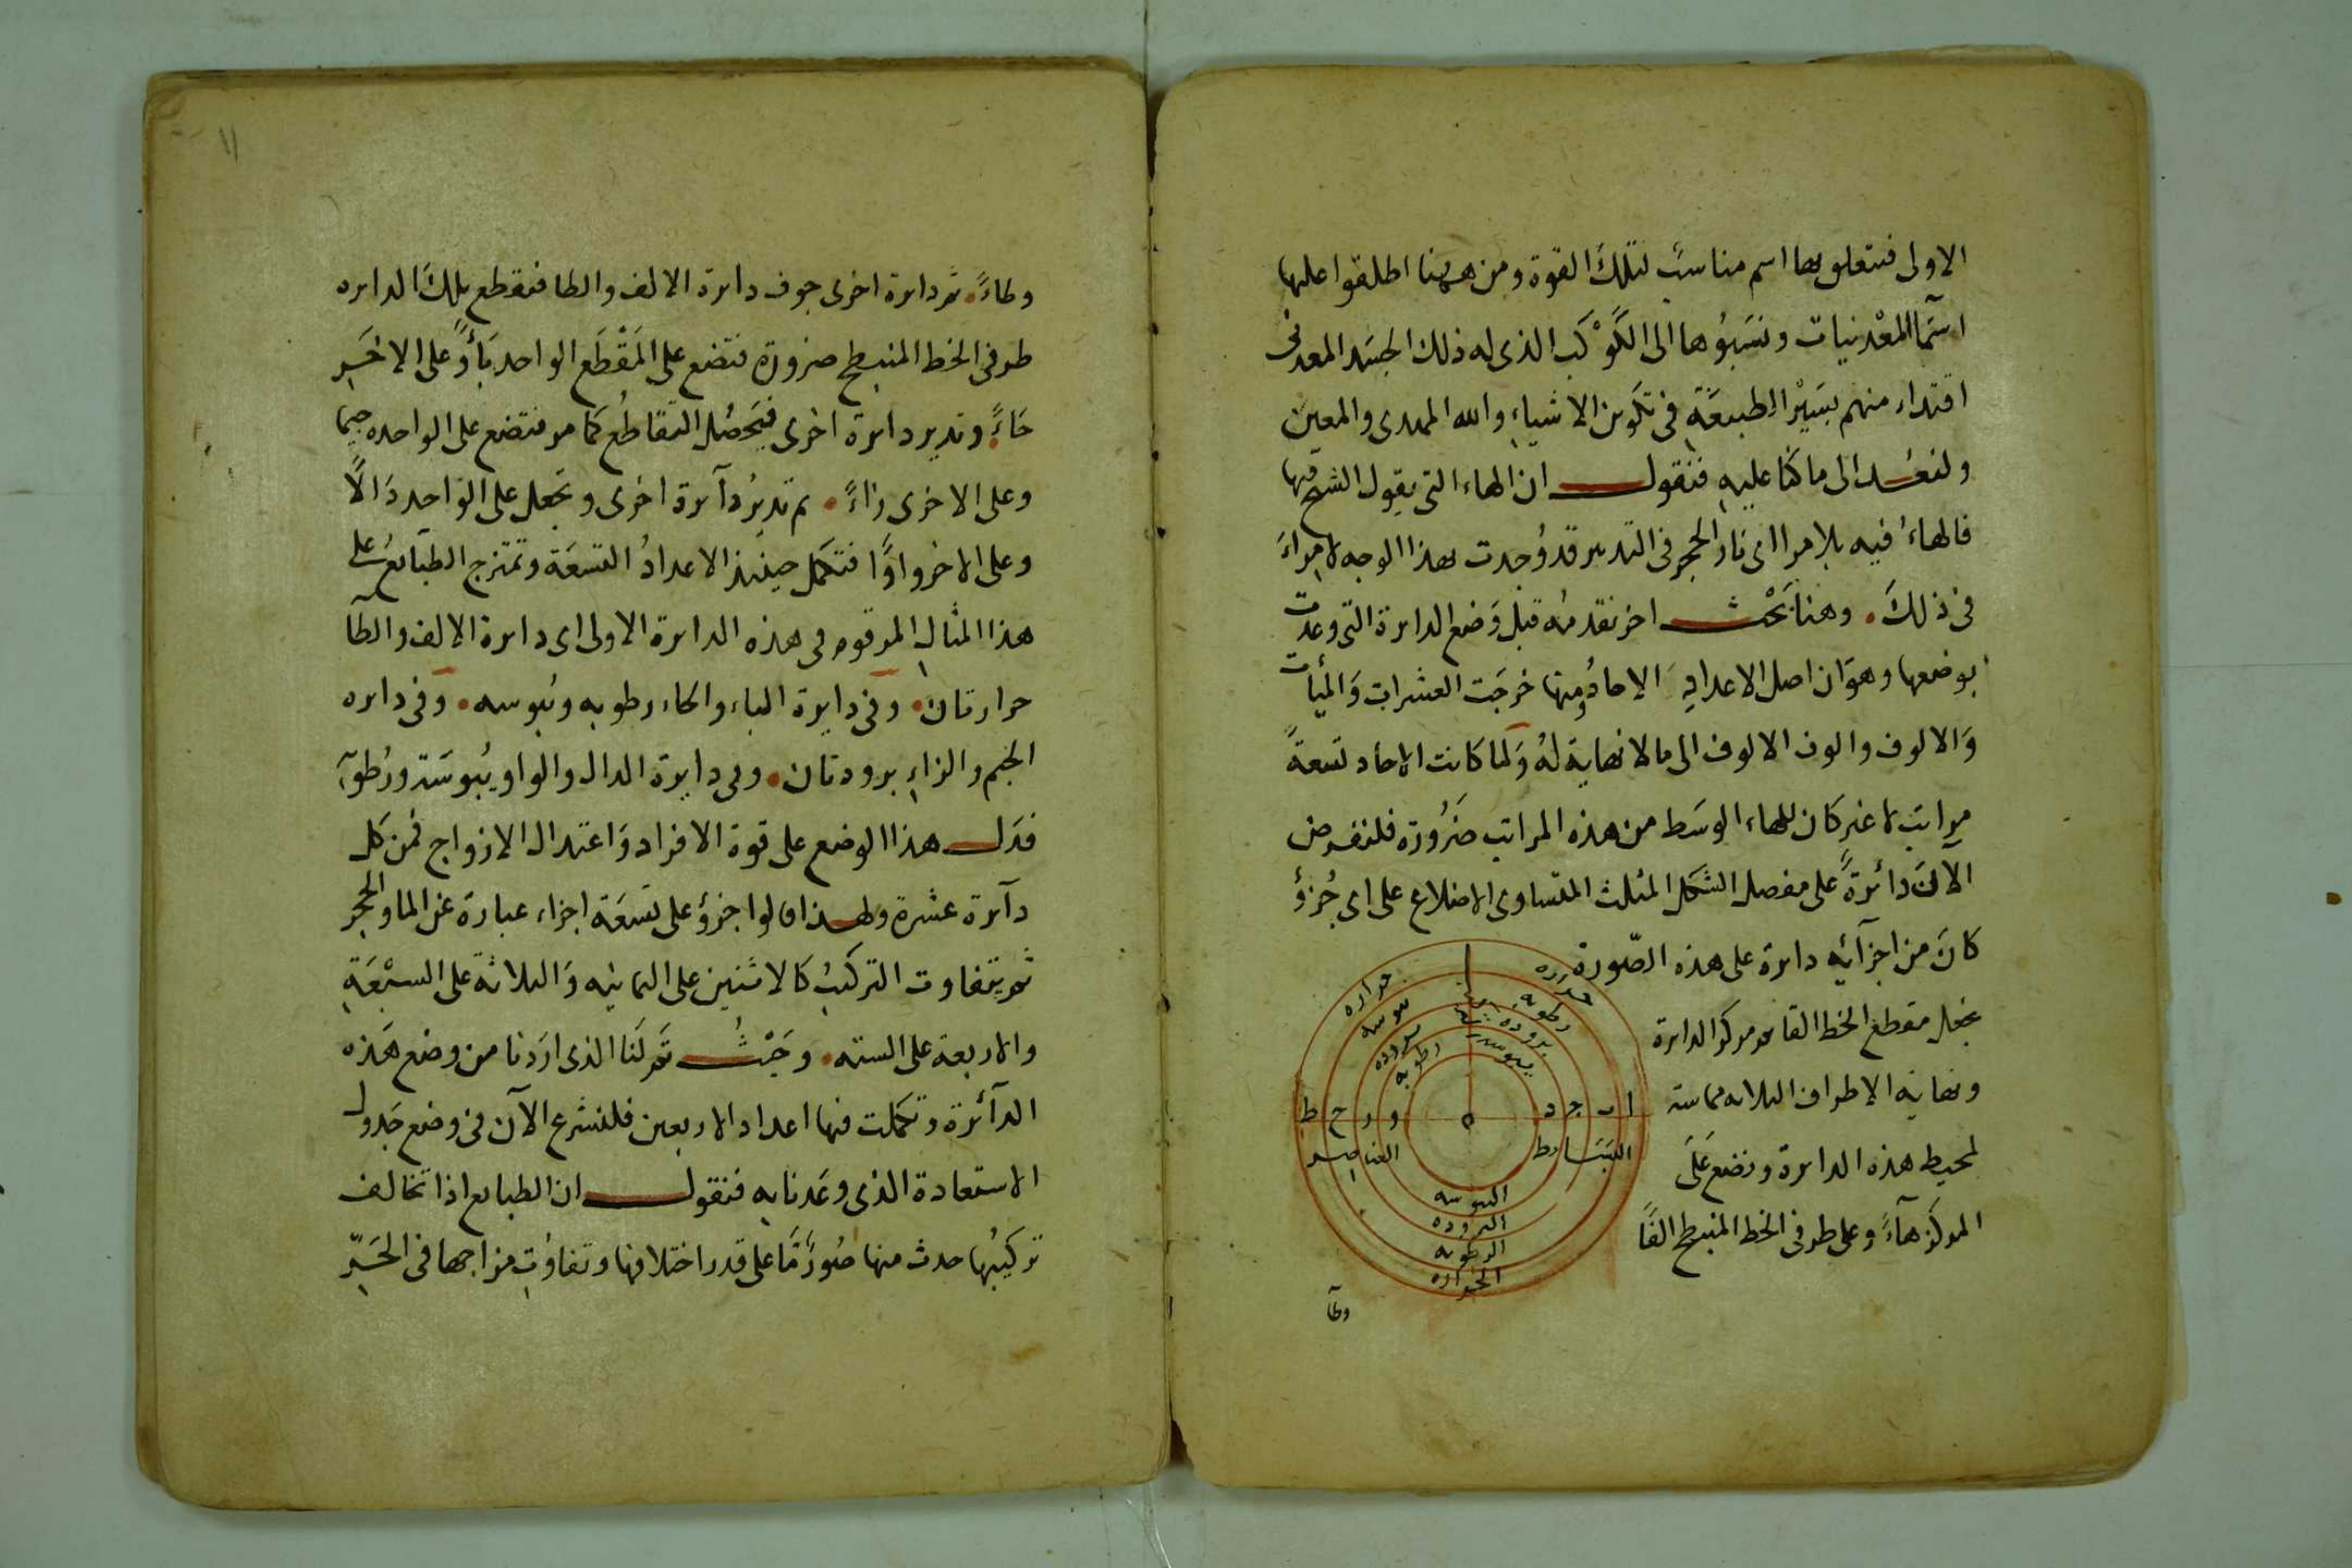 الاولى فيتعلق بها اسم مناسب لتلك القوة ومن ههنا اطلقوا عليها
اسما المعدنيات ونسبوها الى الكوكب الذى له ذلك الجسد المعدنى
اقتداء منهم بسير الطبيعة فى تكوين الاشياء والله المهدى والمعين
ولنعد الى ما كنا عليه فنقول ان الهاء التى يقول الشيخ فيها
فالهاء فيه بلا مرا اى نار الحجر فى التدبير قد وجدت بهذا الوجه لا مراء
فى ذلك . وهنا بحث اخر نقدمه قبل وضع الدايرة التى وعدت
بوضعها وهو ان اصل الاعداد الاحاد ومنها خرجت العشرات والميأت
والالوف والوف الالوف الى ما لا نهاية له ولما كانت الاحاد تسعة
مراتب لا غير كان للهاء الوسط من هذه المراتب ضرورة فلنفرض
الآن دائرة على مفصل الشكل المثلث المتساوى الاضلاع على اى جزؤ
كان من اجزآئه دايرة على هذه الصورة
بجعل مقطع الخط القايم مركز الدايرة
ونهاية الاطراف الثلاثه مماسة
لمحيط هذه الدايرة ونضع على
المركز هآء وعلى طرفى الخط المنبسط الفا
حراره
حراره
يبوسه
رطوبه
بروده
بروده
رطوبه
يبوسه
ا ب ج د
ه
و ز ح ط
البسايط
العناصر
اليبوسه
البروده
الرطوبه
الحراره
وطآ
١١
وطاء . ثم دايرة اخرى جوف دايرة الالف والطا فتقطع بتلك الدايره
طرفى الخط المنبسط ضرورة فتضع على المقطع الواحد باء وعلى الاخر
حاء . وتدير دايرة اخرى فيحصل التقاطع كما مر فتضع على الواحده جيما
وعلى الاخرى زاء . ثم تدير دآيرة اخرى وتجعل على الواحد دالا
وعلى الاخر واوا فتكمل حينئذ الاعداد التسعة وتمتزج الطبايع على
هذا المثال المرقوم فى هذه الدايرة الاولى اى دايرة الالف والطآ
حرارتان . وفى دايرة الباء والحاء رطوبه ويبوسه . وفى دايره
الجيم والزاء برودتان . وفى دايرة الدال والواو يبوسة ورطوبة
فدل هذا الوضع على قوة الافراد واعتدال الازواج فمن كل
دآيرة عشرة ولهذا قالوا جزؤ على تسعة اجزاء عبارة عن الما والحجر
ثم يتفاوت التركيب كالاثنين على الثمانيه والثلاثة على السبعة
والاربعة على السته . وحيث تم لنا الذى اردنا من وضع هذه
الدآئرة وتكملت فيها اعداد الاربعين فلنشرع الآن فى وضع جدول
الاستعادة الذى وعدنا به فنقول ان الطبايع اذا تخالف
تركيبها حدث منها صورة ما على قدر اختلافها وتفاوت مزاجها فى الحر